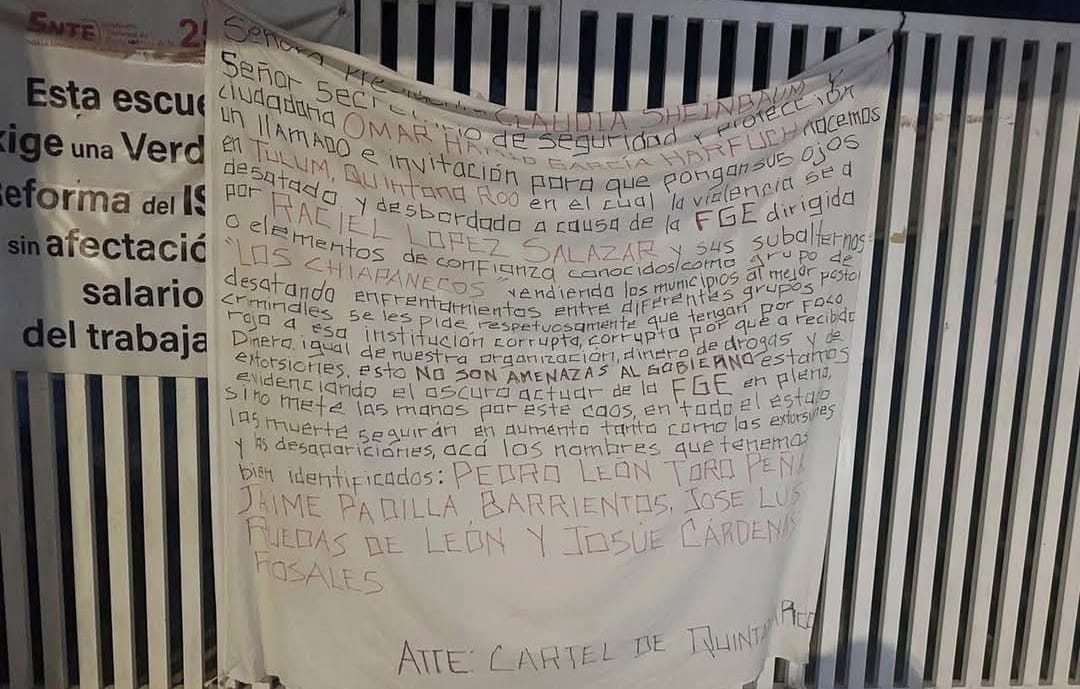 SNTE
Esta escue
xige una Verd
Reforma del IS
sin afectació
salario
del trabaja
Señora Pre CLAUDIA SHEINBAUM Y
Señor Secretario de seguridad y protección
ciudadana OMAR HAMID GARCÍA HARFUCH hacemos
un llAMADO e invitación para que pongan sus ojos
en TULUM, Quintana ROO en el cual la violencia se a
desatado y desbordado a causa de la FGE dirigida
por RACIEL LOPEZ SALAZAR y sus subalternos
o elementos de confianza conocidos como grupo de
"LOS CHIAPANECOS" vendiendo los municipios al mejor postor
desatando enfrentamientos entre diferentes grupos
criminales se les pide, respetuosamente que tengan por FOCO
rojo a esa institución corrupta, corrupta por que a recibido
Dinero, igual de nuestra organización, dinero de drogas y de
extorsiones, esto NO SON AMENAZAS AL GOBIERNO estamos
evidenciando el oscuro actuar de la FGE en pleno,
sino mete las manos por este caos, en todo el estado
las muerte seguirán en aumento tanto como las extorsiones
y las desapariciones, acá los nombres que tenemos
bien identificados: PEDRO LEÓN TORO PEÑA
JAIME PADILLA BARRIENTOS, JOSE LUIS
RUEDAS DE LEÓN Y JOSUÉ CÁRDENAS
ROSALES
ATTE: CARTEL DE QUINTANA ROO